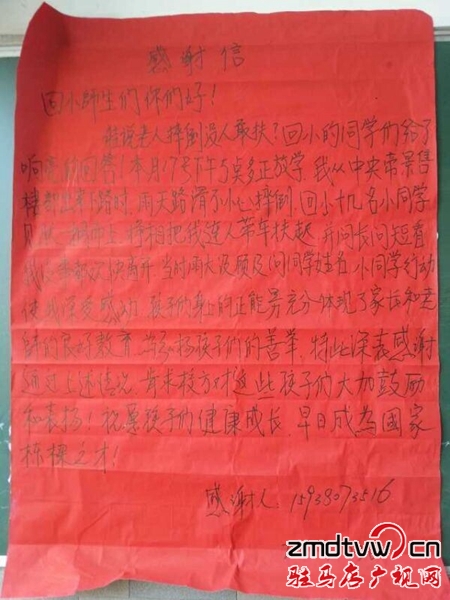 感谢信
回小师生们你们好!
谁说老人摔倒没人敢扶?回小的同学们给了
响亮的回答!本月17号下午5点多正放学,我从中央帝景售
楼部出来下路时,雨天路滑不小心摔倒,回小十几名小同学
争相把我连人带车扶起,并问长问短看
离开,当时雨大没顾及问同学姓名,小同学行动
使我深受感动,孩子们身上的正能量充分体现了家长和老
师的良好教育,为弘扬孩子们的善举,特此深表感谢
通过上述情况,肯求校方对这些孩子们大加鼓励
和表扬!祝愿孩子们健康成长,早日成为国家
栋樑之才!
感谢人 15938073516
zmdtvw.cn
驻马店广视网